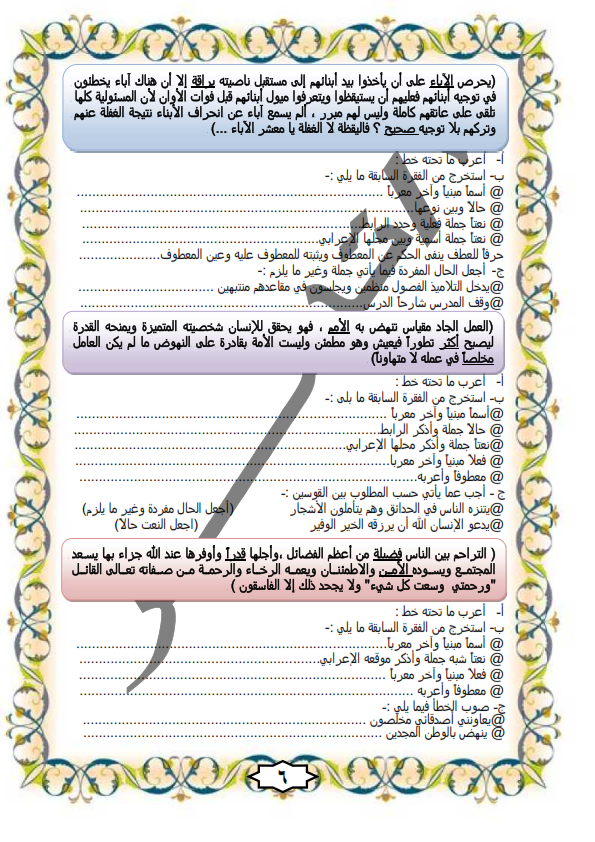 (يحرص الآباء على أن يأخذوا بيد أبنائهم إلى مستقبل ناصيته براقة إلا أن هناك آباء يخطئون
في توجيه أبنائهم فعليهم أن يستيقظوا ويتعرفوا ميول أبنائهم قبل فوات الأوان لأن المسئولية كلها
تلقى على عاتقهم كاملة وليس لهم مبرر ، ألم يسمع آباء عن انحراف الأبناء نتيجة الغفلة عنهم
وتركهم بلا توجيه صحيح ؟ فاليقظة لا الغفلة يا معشر الآباء ...)
أ- أعرب ما تحته خط :
ب- استخرج من الفقرة السابقة ما يلي :-
@ أسماً مبنياً وآخر معرباً ........................................
@ حالاً وبين نوعها........................................
@ نعتاً جملة فعلية وحدد الرابط........................................
@ نعتاً جملة أسمية وبين محلها الإعرابي........................................
حرفاً للعطف ينفى الحكم عن المعطوف ويثبته للمعطوف عليه وعين المعطوف....................
ج- أجعل الحال المفردة فيما يأتي جملة وغير ما يلزم :-
@يدخل التلاميذ الفصول منظمين ويجلسون في مقاعدهم منتبهين ..............................
@وقف المدرس شارحاً الدرس....................
(العمل الجاد مقياس تنهض به الأمم ، فهو يحقق للإنسان شخصيته المتميزة ويمنحه القدرة
ليصبح أكثر تطوراً فيعيش وهو مطمئن وليست الأمة بقادرة على النهوض ما لم يكن العامل
مخلصاً في عمله لا متهاوناً)
أ- أعرب ما تحته خط :
ب- استخرج من الفقرة السابقة ما يلى :-
@أسماً مبنياً وآخر معرباً ........................................
@ حالاً جملة وأذكر الرابط........................................
@نعتاً جملة وأذكر محلها الإعرابي........................................
@ فعلا مبنياً وآخر معرباً........................................
@ معطوفاً وأعربه........................................
ج - أجب عما يأتي حسب المطلوب بين القوسين :-
@يتنزه الناس في الحدائق وهم يتأملون الأشجار (أجعل الحال مفردة وغير ما يلزم)
@يدعو الإنسان الله أن يرزقه الخير الوفير (اجعل النعت حالاً)
( التراحم بين الناس فضيلة من أعظم الفضائل ،وأجلها قدراً وأوفرها عند الله جزاء بها يسعد
المجتمع ويسوده الأمن والاطمئنان ويعمه الرخاء والرحمة من صفاته تعالى القائل
"ورحمتي وسعت كل شيء" ولا يجحد ذلك إلا الفاسقون )
أ- أعرب ما تحته خط :
ب- استخرج من الفقرة السابقة ما يلي :-
@ أسماً مبنياً وآخر معرباً........................................
@ نعتاً شبه جملة وأذكر موقعه الإعرابي........................................
@ فعلا مبنياً وآخر معرباً ........................................
@ معطوفاً وأعربه ........................................
ج- صوب الخطأ فيما يلي :-
@يعاونني أصدقائي مخلصون ........................................
@ ينهض بالوطن المجدين ........................................
٦